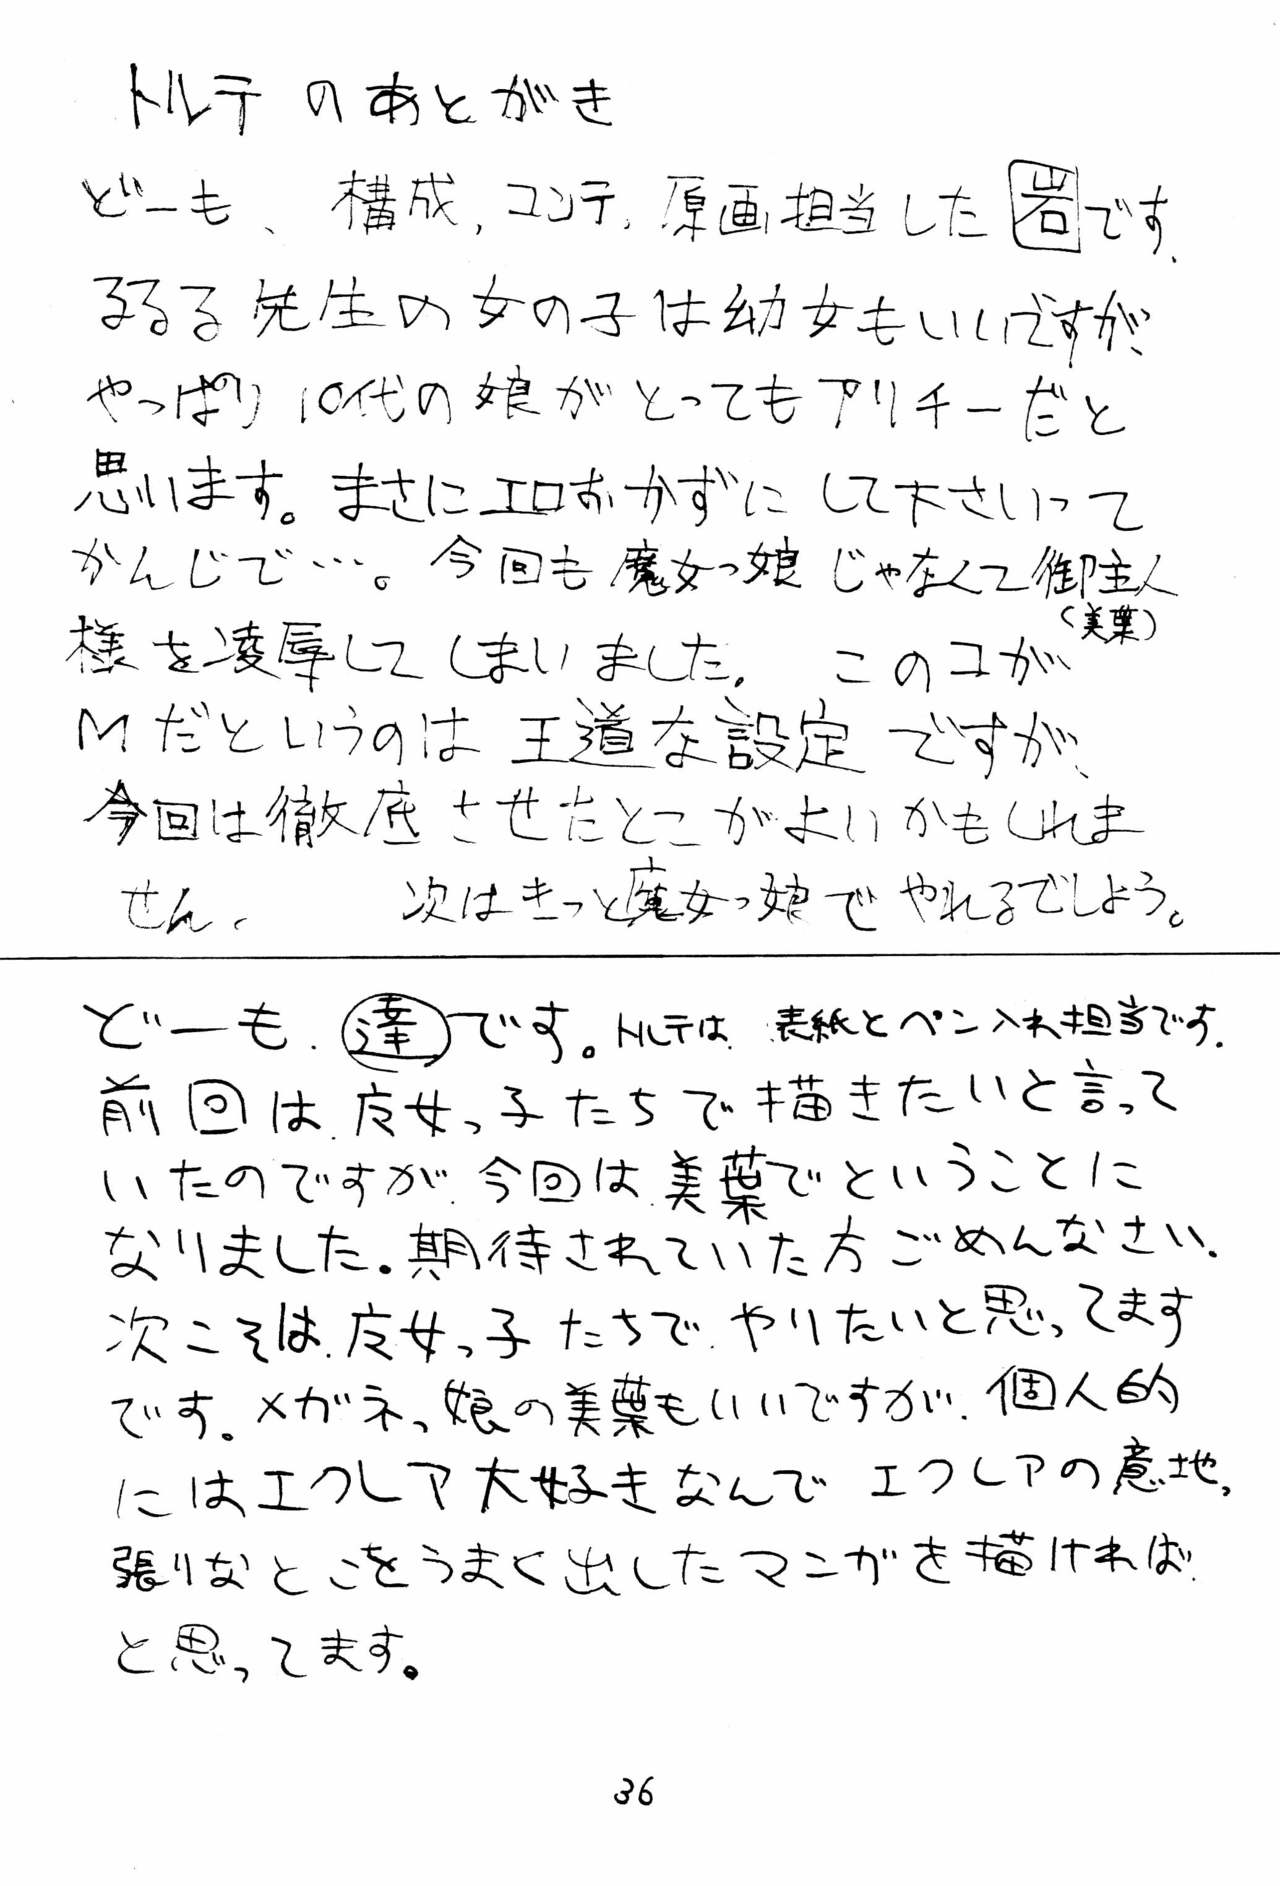 トルテのあとがき
どーも、構成,コンテ,原画担当した岩です.
るるる先生の女の子は幼女もいいですが、
やっぱり10代の娘がとってもプリチーだと
思います。まさにエロおかずにして下さいって
かんじで…。今回も魔女っ娘じゃなくて御主人
(美葉)
様を凌辱してしまいました. このコが
Mだというのは王道な設定ですが、
今回は徹底させたとこがよいかもしれま
せん. 次はきっと魔女っ娘でやれるでしょう。
どーも.達です。トルテは.表紙とペン入れ担当です.
前回は.魔女っ子たちで描きたいと言って
いたのですが.今回は.美葉でということに
なりました。期待されていた方ごめんなさい.
次こそは.魔女っ子たちで.やりたいと思ってます
です。メガネっ娘の美葉もいいですが.個人的
にはエクレア大好きなんでエクレアの意地っ
張りなとこをうまく出したマンガを描ければ.
と思ってます。
36